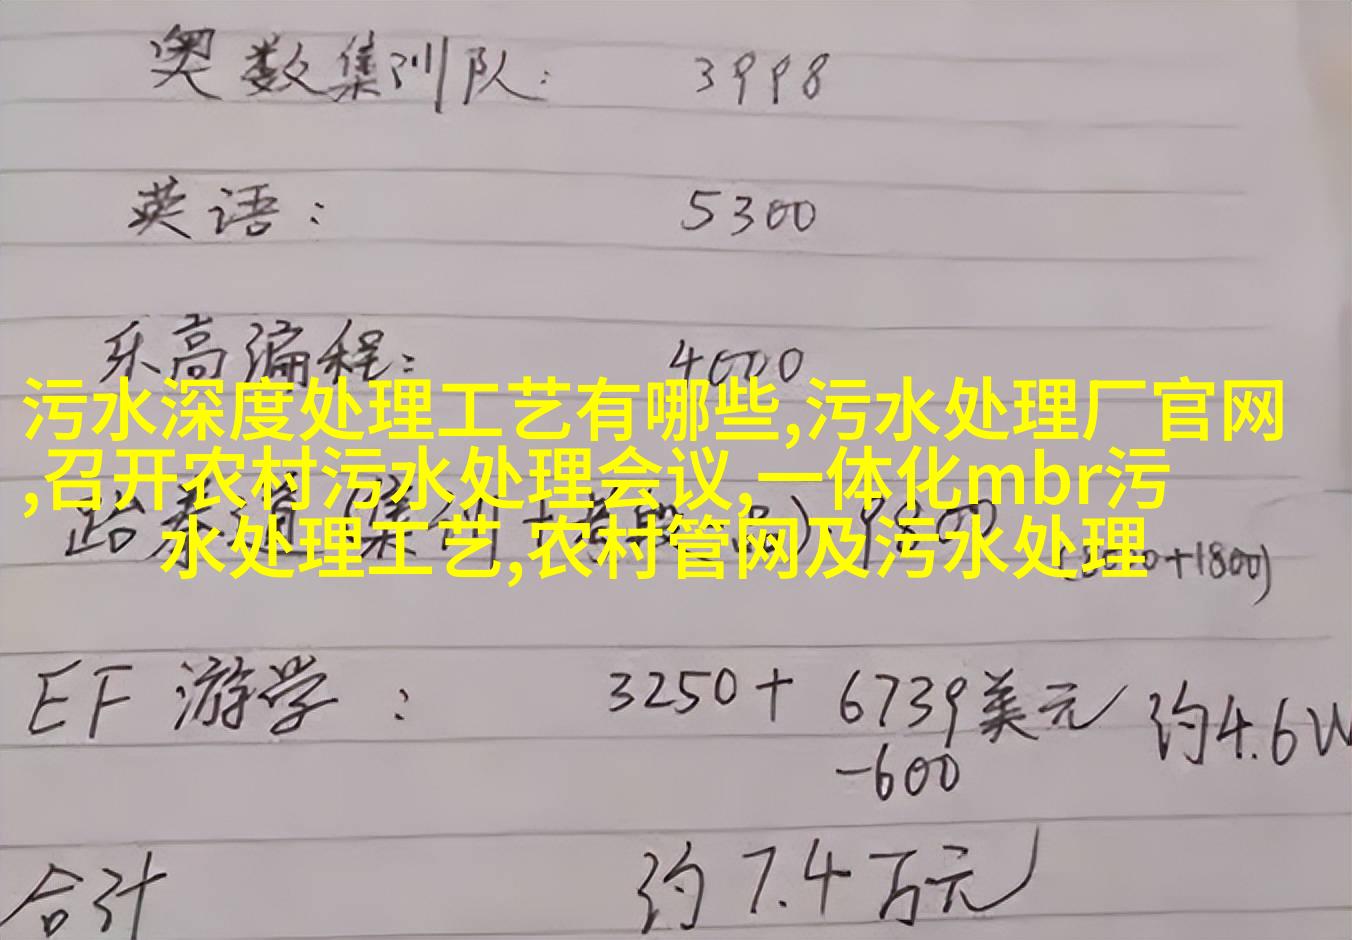 奥数集训队: 3998
英语: 5300
乐高编程: 4000
污水深度处理工艺有哪些,污水处理厂官网
,召开农村污水处理会议,一体化mbr污
水处理工艺,农村管网及污水处理
跆拳道(集训+考段 品) 9800
+1800)
EF 游学: 3250+ 6739美元 约4.6W
-600
合计 约7.4万元